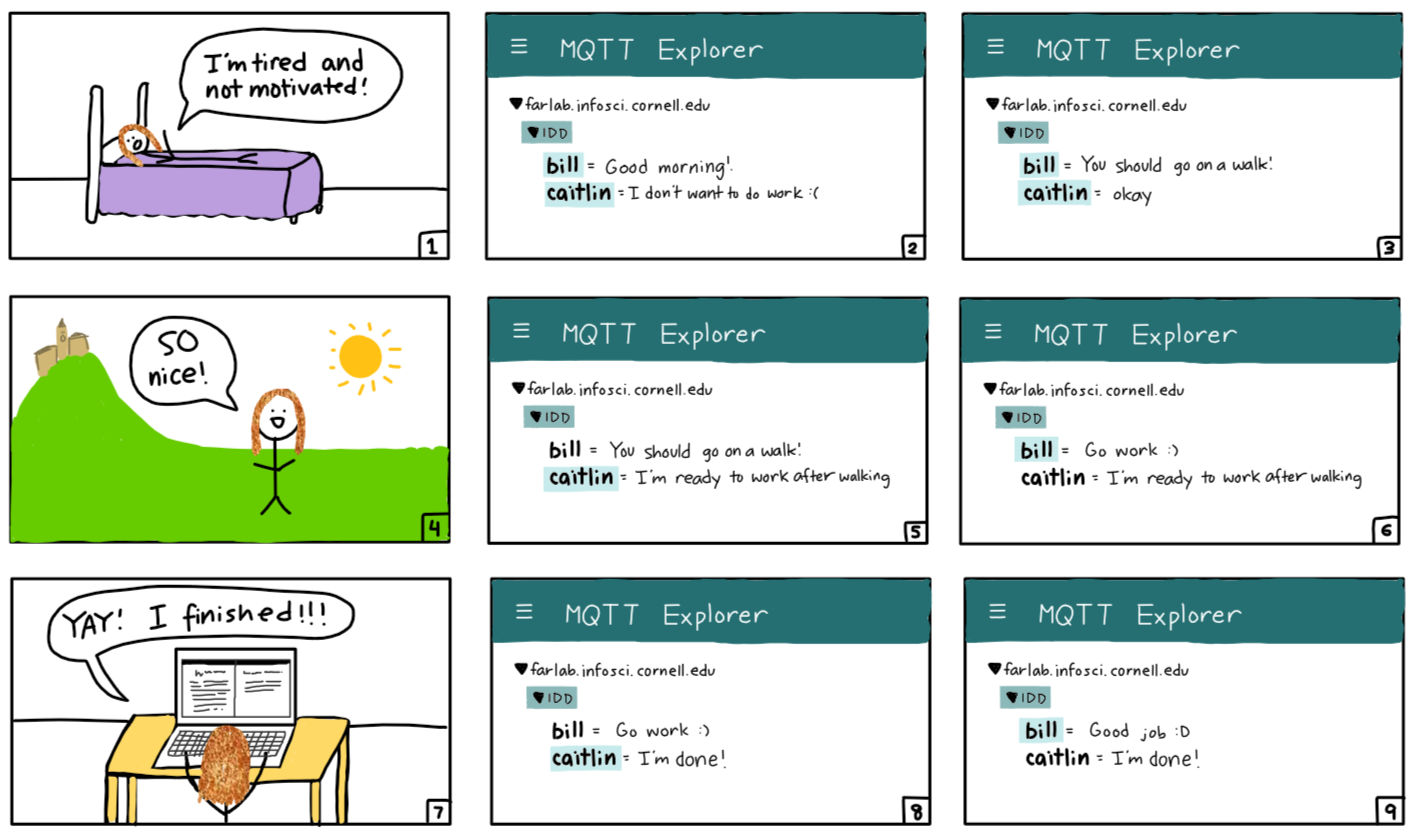 I'm tired and
not motivated!
1
MQTT Explorer
farlab.infosci.cornell.edu
IDD
bill = Good morning!
caitlin = I don't want to do work :(
2
MQTT Explorer
farlab.infosci.cornell.edu
IDD
bill = You should go on a walk!
caitlin = okay
3
SO
nice!
4
MQTT Explorer
farlab.infosci.cornell.edu
IDD
bill = You should go on a walk!
caitlin = I'm ready to work after walking
5
MQTT Explorer
farlab.infosci.cornell.edu
IDD
bill = Go work :)
caitlin = I'm ready to work after walking
6
YAY! I finished!!!
7
MQTT Explorer
farlab.infosci.cornell.edu
IDD
bill = Go work :)
caitlin = I'm done!
8
MQTT Explorer
farlab.infosci.cornell.edu
IDD
bill = Good job :D
caitlin = I'm done!
9